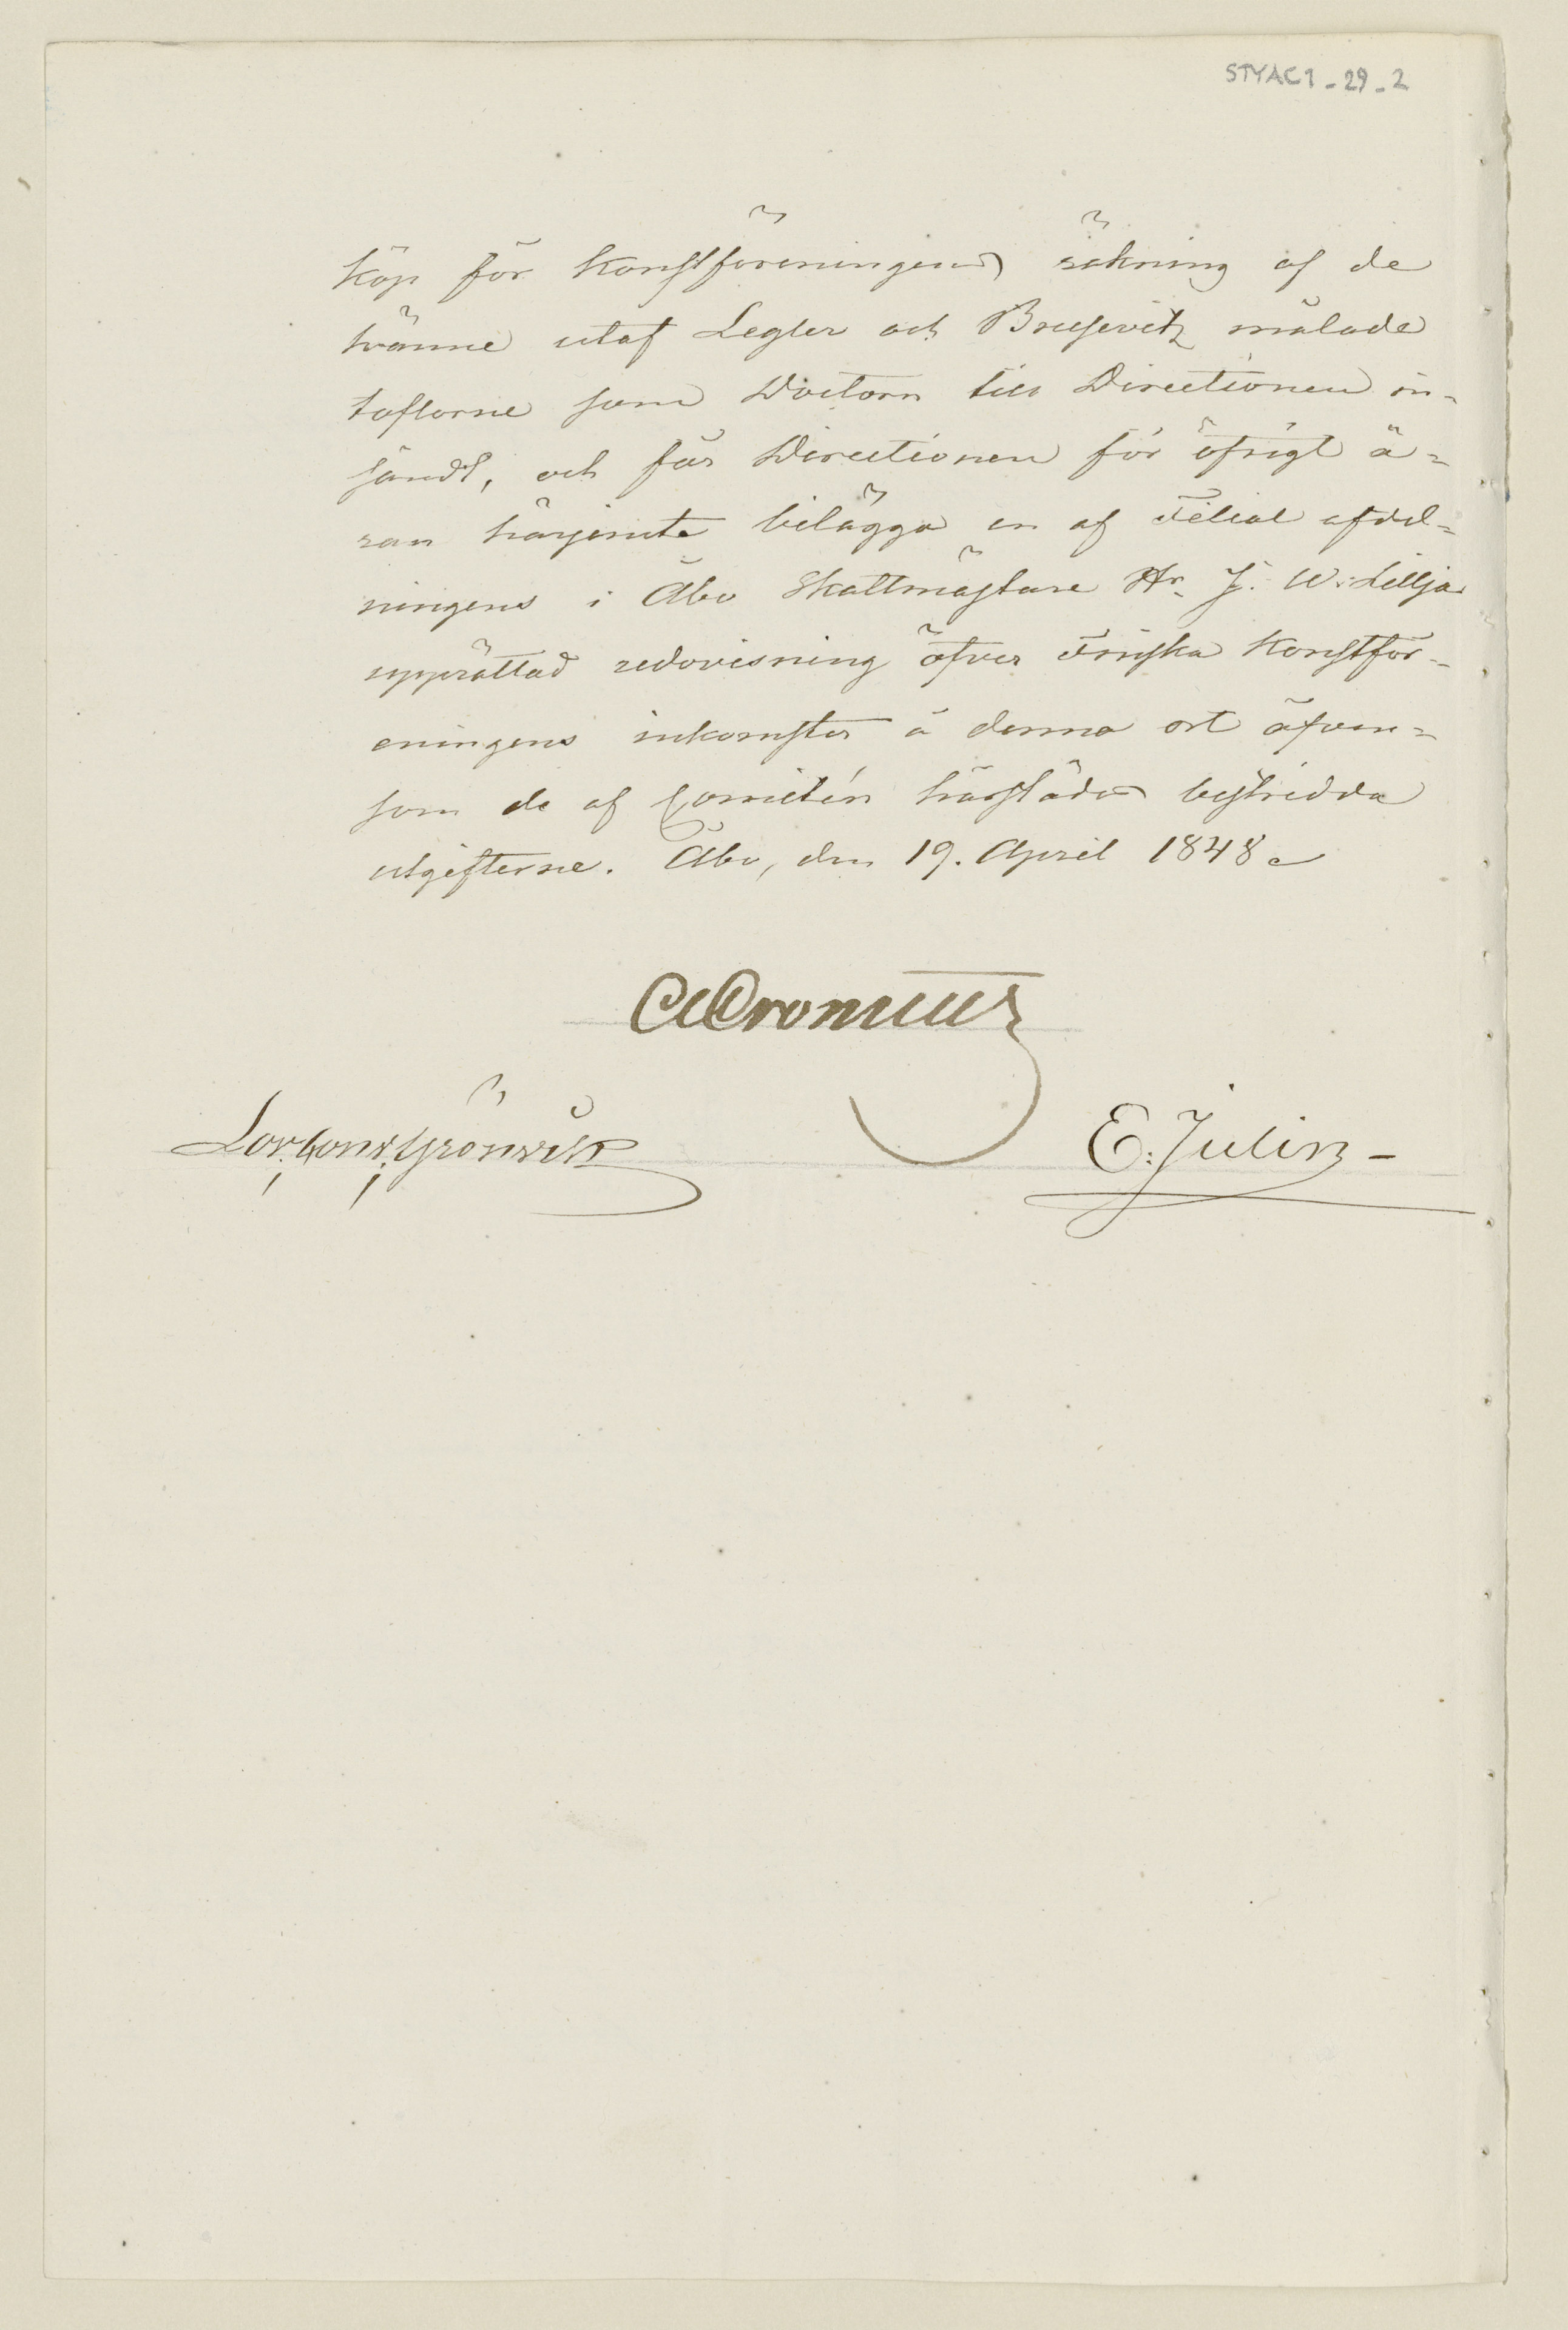 STYAC1-29-2
köp för Konstföreningens räkning af de
tvänne utaf Legler och Brusevitz målade
taflorne som Doctorn till Directionen in-
sändt, och får Directionen för öfrigt ä-
ran härjemte bilägga en af Filial afdel-
ningens i Åbo Skattmästare Hr J. W. Lillja
upprättad redovisning öfver Finska Konstför-
eningens inkomster å denna ort äfven-
som de af Comitén härstädes bestridda
utgifterne. Åbo, den 19. April 1848
E. Julin